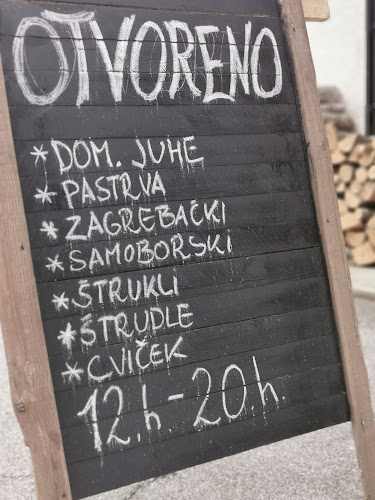 OTVORENO
* DOM. JUHE
* PASTRVA
* ZAGREBAČKI
* SAMOBORSKI
* ŠTRUKLI
* ŠTRUDLE
* CVIČEK
12.h-20.h.